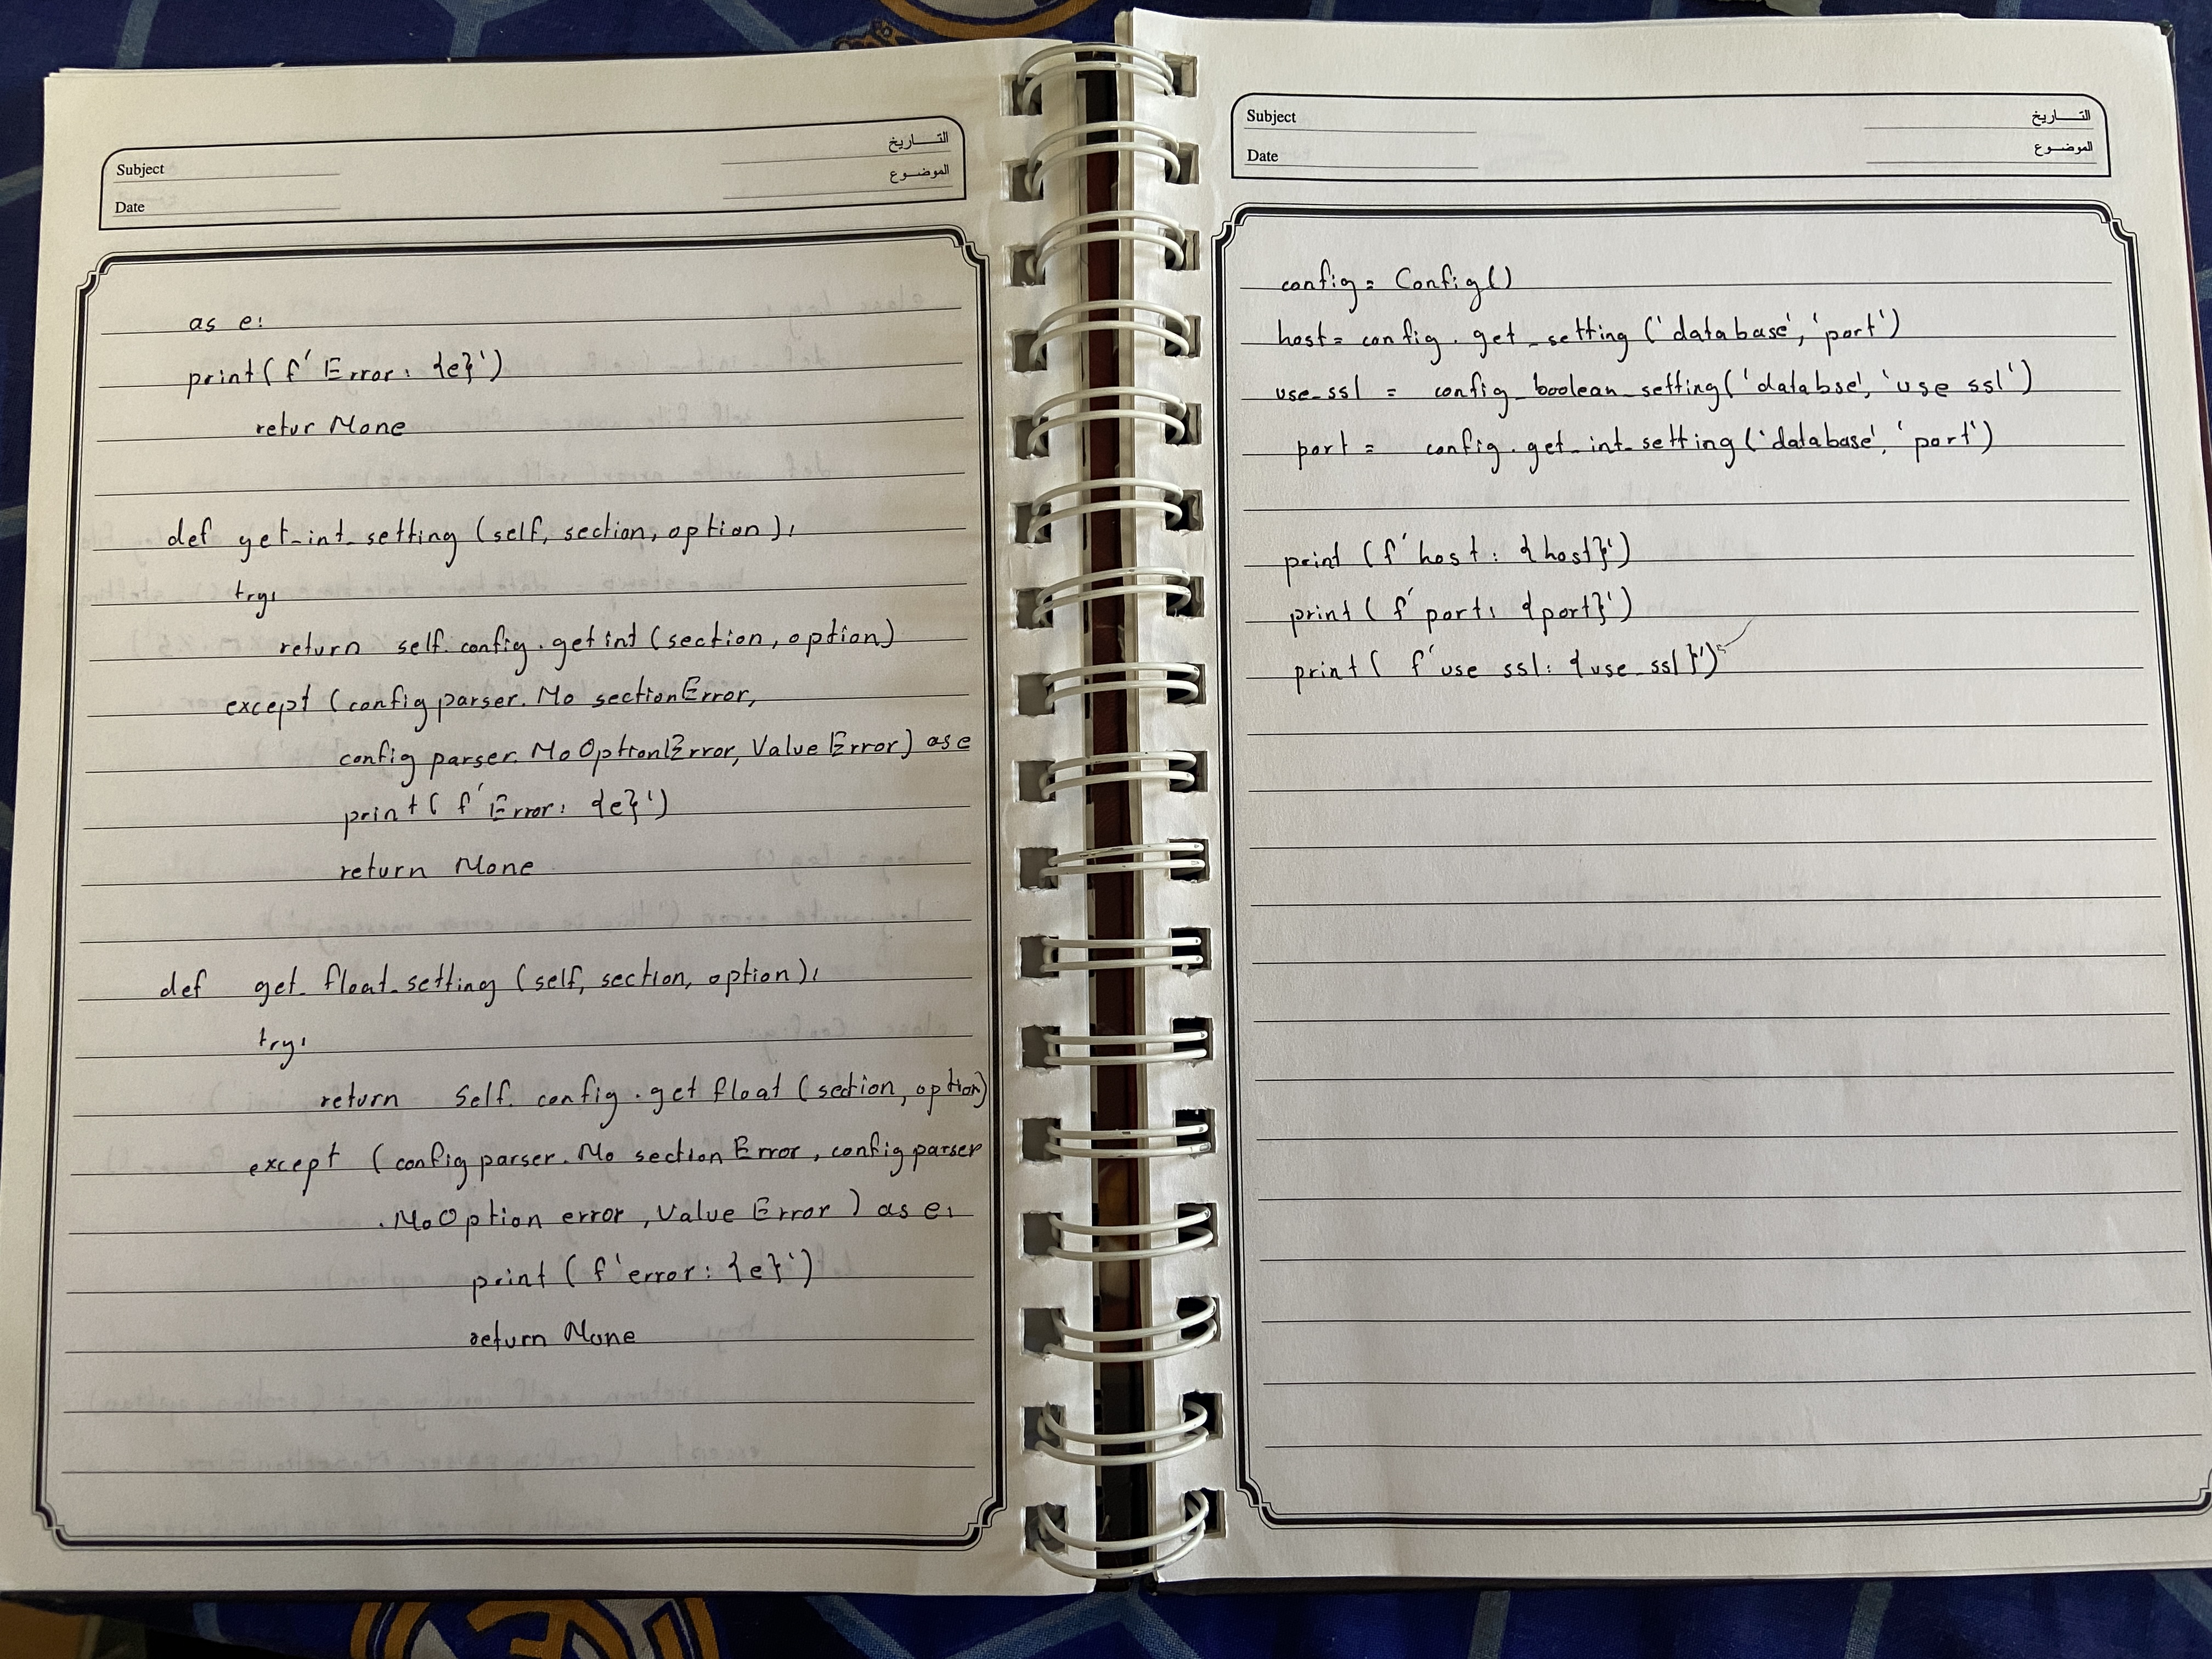 Subject
التــاريخ
Date
الموضوع
as e:
print(f'Error: {e}')
retur None
def get_int_setting (self, section, option):
try:
return self.config.getint (section, option)
except (configparser.No sectionError,
configparser.NoOptionError, ValueError) as e
print(f'Error: {e}')
return None
def get_float_setting (self, section, option):
try:
return self.config.get float (section, option)
except (configparser.No section Error, configparser
.NoOption error, Value Error) as e:
print(f'error: {e}')
return None
Subject
التــاريخ
Date
الموضوع
config = Config()
host = config.get_setting ('database', 'port')
use_ssl = config_boolean_setting('databse', 'use ssl')
port = config.get_int_setting('database', 'port')
print (f'host: {host}')
print(f'port: {port}')
print( f'use ssl: {use_ssl}')